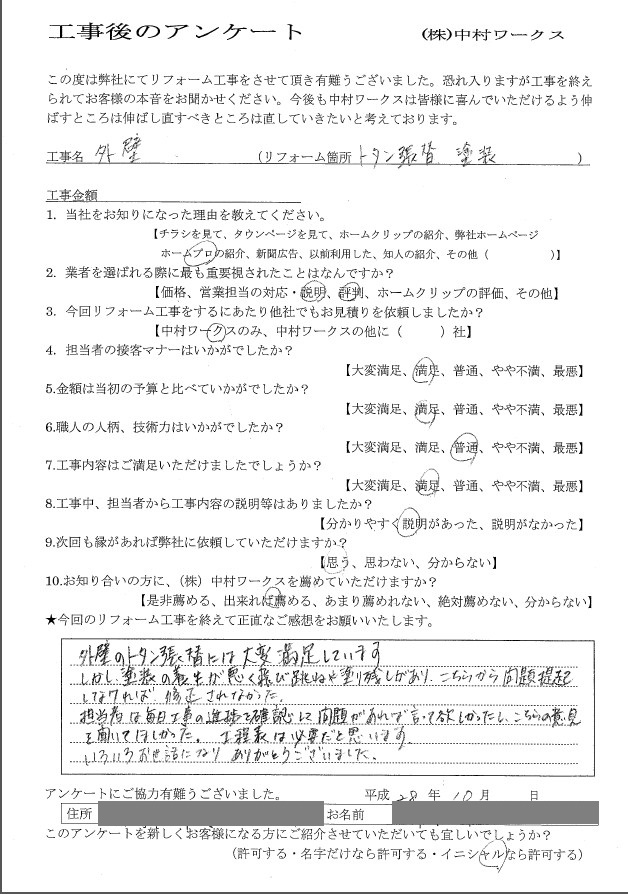 工事後のアンケート　(株)中村ワークス
この度は弊社にてリフォーム工事をさせて頂き有難うございました。恐れ入りますが工事を終え
られてお客様の本音をお聞かせください。今後も中村ワークスは皆様に喜んでいただけるよう伸
ばすところは伸ばし直すべきところは直していきたいと考えております。
工事名 外壁　（リフォーム箇所 トタン張替 塗装　）
工事金額
1. 当社をお知りになった理由を教えてください。
【チラシを見て、タウンページを見て、ホームクリップの紹介、弊社ホームページ
ホームプロの紹介、新聞広告、以前利用した、知人の紹介、その他（　　　）】
2. 業者を選ばれる際に最も重要視されたことはなんですか？
【価格、営業担当の対応・説明、評判、ホームクリップの評価、その他】
3. 今回リフォーム工事をするにあたり他社でもお見積りを依頼しましたか？
【中村ワークスのみ、中村ワークスの他に（　　　）社】
4. 担当者の接客マナーはいかがでしたか？
【大変満足、満足、普通、やや不満、最悪】
5.金額は当初の予算と比べていかがでしたか？
【大変満足、満足、普通、やや不満、最悪】
6.職人の人柄、技術力はいかがでしたか？
【大変満足、満足、普通、やや不満、最悪】
7.工事内容はご満足いただけましたでしょうか？
【大変満足、満足、普通、やや不満、最悪】
8.工事中、担当者から工事内容の説明等はありましたか？
【分かりやすく説明があった、説明がなかった】
9.次回も縁があれば弊社に依頼していただけますか？
【思う、思わない、分からない】
10.お知り合いの方に、（株）中村ワークスを薦めていただけますか？
【是非薦める、出来れば薦める、あまり薦めれない、絶対薦めない、分からない】
★今回のリフォーム工事を終えて正直なご感想をお願いいたします。
外壁のトタン張替には大変満足しています
しかし塗装の養生が悪く飛び跳ねや塗り残しがあり、こちらから問題提起
しなければ 修正されなかった。
担当者は毎日工事の進捗を確認して問題があれば言って欲しかったし、こちらの意見
を聞いてほしかった。 工程表は必要だと思います。
いろいろお世話になり ありがとうございました。
アンケートにご協力有難うございました。　平成 28 年 10 月　日
住所　お名前
このアンケートを新しくお客様になる方にご紹介させていただいても宜しいでしょうか？
（許可する・名字だけなら許可する・イニシャルなら許可する）